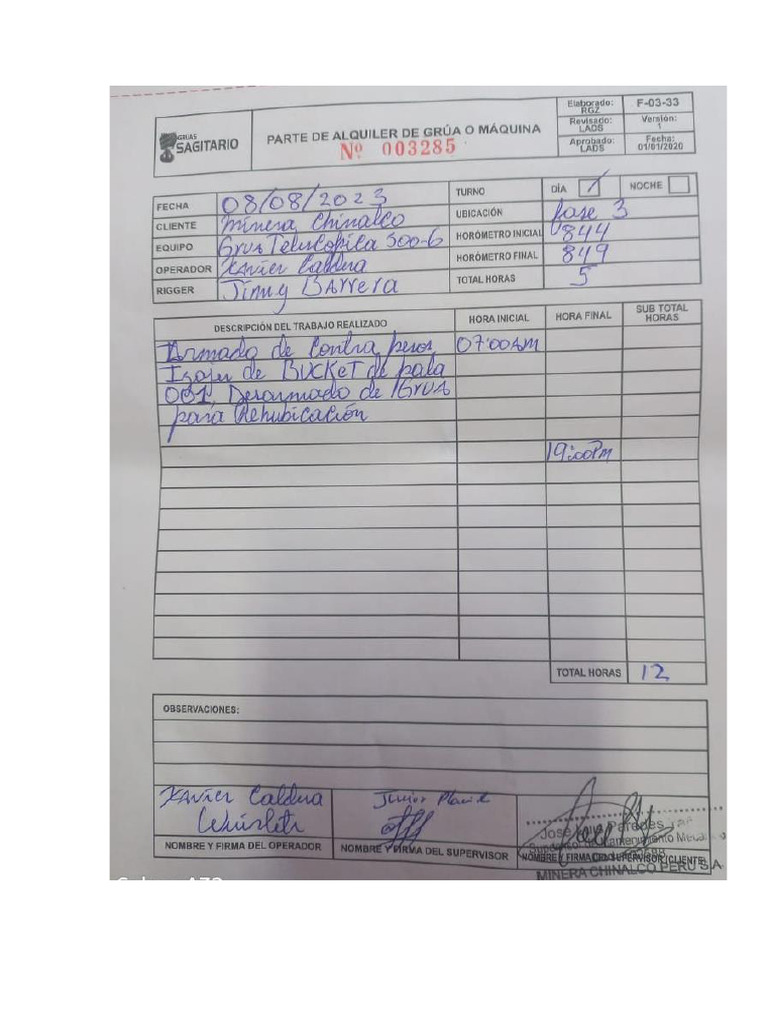 GRUAS
SAGITARIO
PARTE DE ALQUILER DE GRÚA O MÁQUINA
Nº 003285
Elaborado: RGZ
F-03-33
Revisado: LADS
Versión: 1
Aprobado: LADS
Fecha: 01/01/2020
FECHA 08/08/2023
TURNO DÍA NOCHE
CLIENTE Minera Chinalco
UBICACIÓN fase 3
EQUIPO Grua Telescopica 300-6
HORÓMETRO INICIAL 0844
OPERADOR Xavier Caldera
HORÓMETRO FINAL 849
RIGGER Jimmy Barrera
TOTAL HORAS 5
DESCRIPCIÓN DEL TRABAJO REALIZADO HORA INICIAL HORA FINAL SUB TOTAL HORAS
Armado de Contra pesos 07:00AM
Izaje de BUCKET de pala
001, Desarmado de Grua
para Rehubicación
19:00PM
TOTAL HORAS 12
OBSERVACIONES:
Xavier Caldera
Junior
José Luis Paredes
Mantenimiento
NOMBRE Y FIRMA DEL OPERADOR
NOMBRE Y FIRMA DEL SUPERVISOR
NOMBRE Y FIRMA DEL SUPERVISOR (CLIENTE)
MINERA CHINALCO PERÚ S.A.